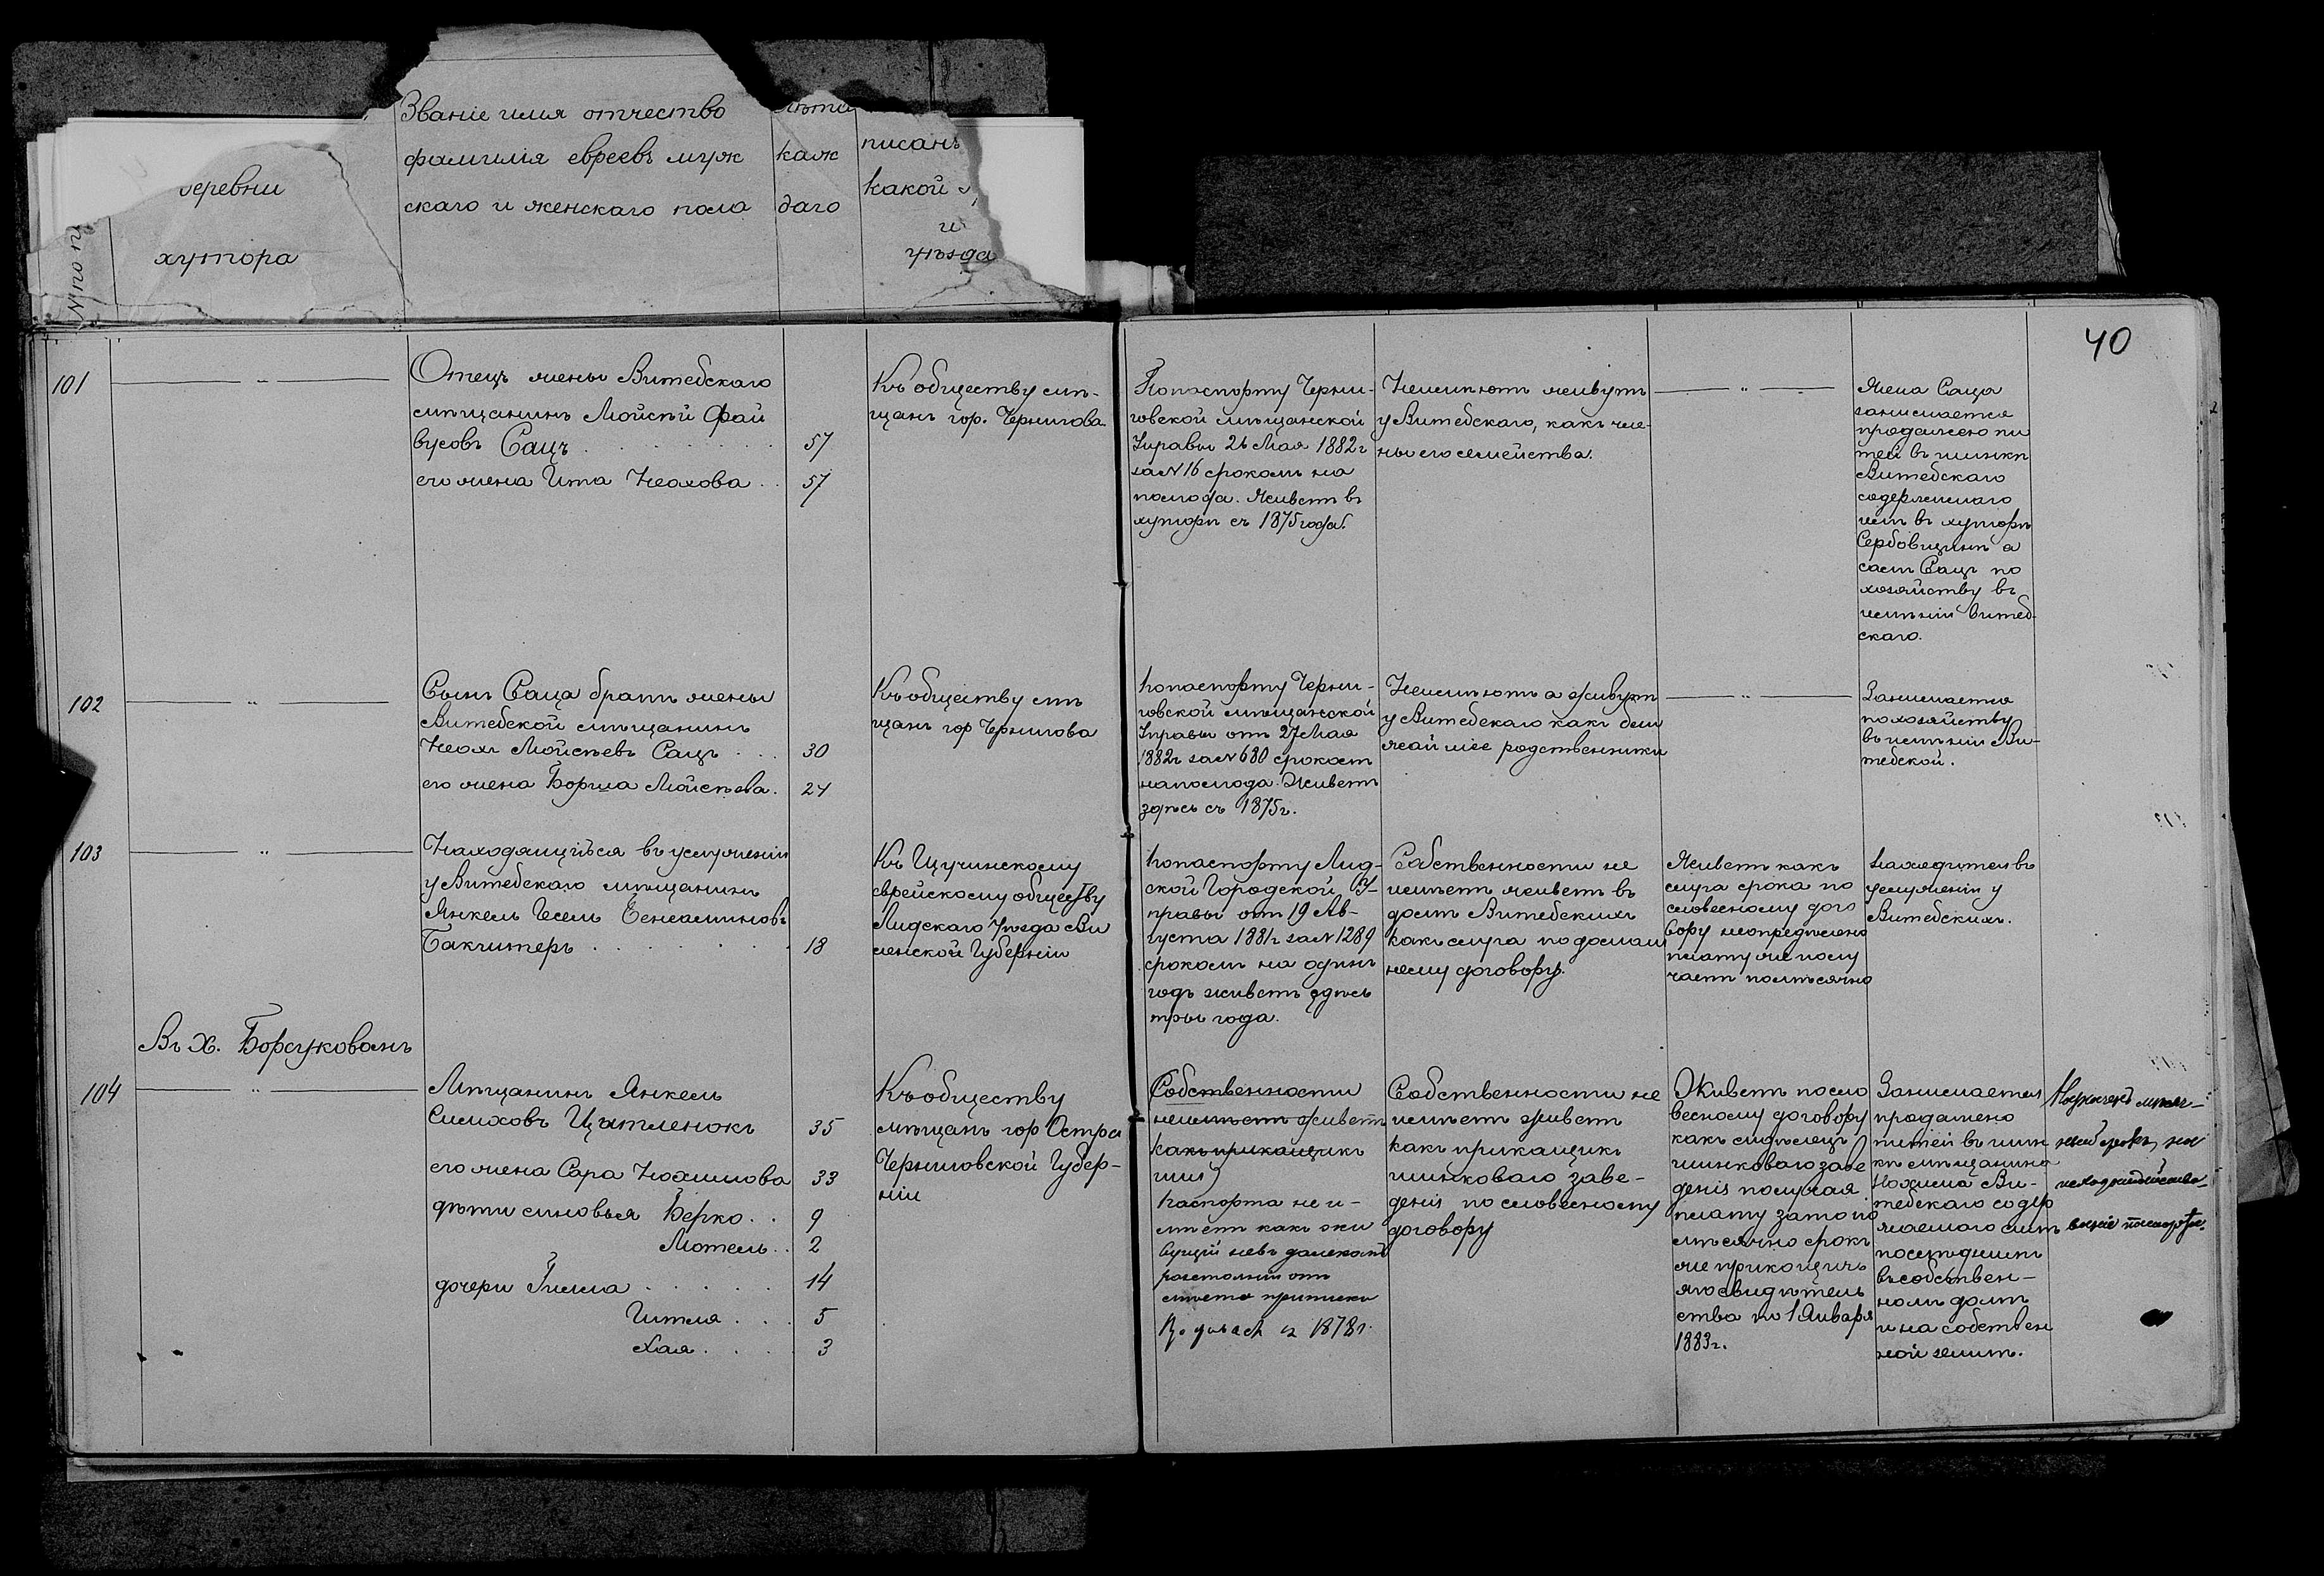 Званіе имя отчество
фамилія евреевъ муж
скаго и женскаго пола
лѣта
каж
даго
писанъ
какой
и
уѣзда
деревни
хутора
№ по п
40
101
Отецъ жены Витебскаго
мѣщанинъ Мойсѣй Фай
вусовъ Сацъ 57
его жена Ита Неахова 57
Къ обществу мѣ-
щанъ гор. Чернигова
По паспорту Черни-
говской мѣщанской
Управы 26 Мая 1882 г
за № 16 срокомъ на
полгода. Живетъ въ
хуторѣ съ 1875 года.
Неимѣютъ живутъ
у Витебскаго, какъ чле-
ны его семейства.
— „ —
Жена Саца
занимается
продажею пи
тей въ шинкѣ
Витебскаго
содержимаго
имъ въ хуторѣ
Сербовщинѣ а
самъ Сацъ по
хозяйству въ
имѣніи Витеб-
скаго.
102
Сынъ Саца братъ жены
Витебской мѣщанинъ
Неахъ Мойсѣевъ Сацъ 30
его жена Борша Мойсѣева. 24
Къ обществу мѣ
щанъ гор Чернигова
По паспорту Черни-
говской мѣщанской
Управы отъ 27 Мая
1882 г за № 680 срокомъ
на полгода. Живетъ
здѣсь съ 1875 г.
Неимѣютъ а живутъ
у Витебскаго какъ бли
жайшіе родственники
— „ —
Занимается
по хозяйству
въ имѣніи Ви-
тебской.
103
Находящійся въ услуженіи
у Витебскаго мѣщанинъ
Янкель Іосель Бенеаминовъ
Бакчитеръ 18
Къ Щучинскому
еврейскому обществу
Лидскаго Уѣзда Ви
ленской Губерніи
По паспорту Лид-
ской Городской У-
правы отъ 19 Ав-
густа 1881 г за № 1289
срокомъ на одинъ
годъ живетъ здѣсь
три года.
Собственности не
имѣетъ живетъ въ
домѣ Витебскихъ
какъ слуга по домаш
нему договору.
Живетъ какъ
слуга срока по
словесному дого
вору неопредѣлено
плату же полу
чаетъ помѣсячно
находится въ
услуженіи у
Витебскихъ.
Въ Х. Борсуковѣ
104
Мѣщанинъ Янкель
Симховъ Цытленокъ 35
его жена Сара Нохимова 33
дѣти сыновья Берко 9
Мотель 2
дочери Гилла 14
Гитля 5
Хая 3
Къ обществу
мѣщанъ гор Остра
Черниговской Губер-
ніи
Собственности
неимѣетъ живетъ
какъ прикащикъ
шин)
паспорта не и-
мѣетъ какъ жи
вущій невъ далекомъ
разстояніи отъ
мѣста приписки
съ 1878 г.
Собственности не
имѣетъ живетъ
какъ прикащикъ
шинковаго заве-
денія по словесному
договору
Живетъ посло
весному договору
какъ сидѣлецъ
шинковаго заве
денія получая
плату за то по
мѣсячно срокъ
же прикащичь
яго свидѣтель
ства по 1 Января
1883 г.
Занимается
продажею
питей въ шин
кѣ мѣщанина
Нохима Ви-
тебскаго содер
жаемого симъ
послѣднимъ
въ собствен-
номъ домѣ
и на собствен
ной землѣ.